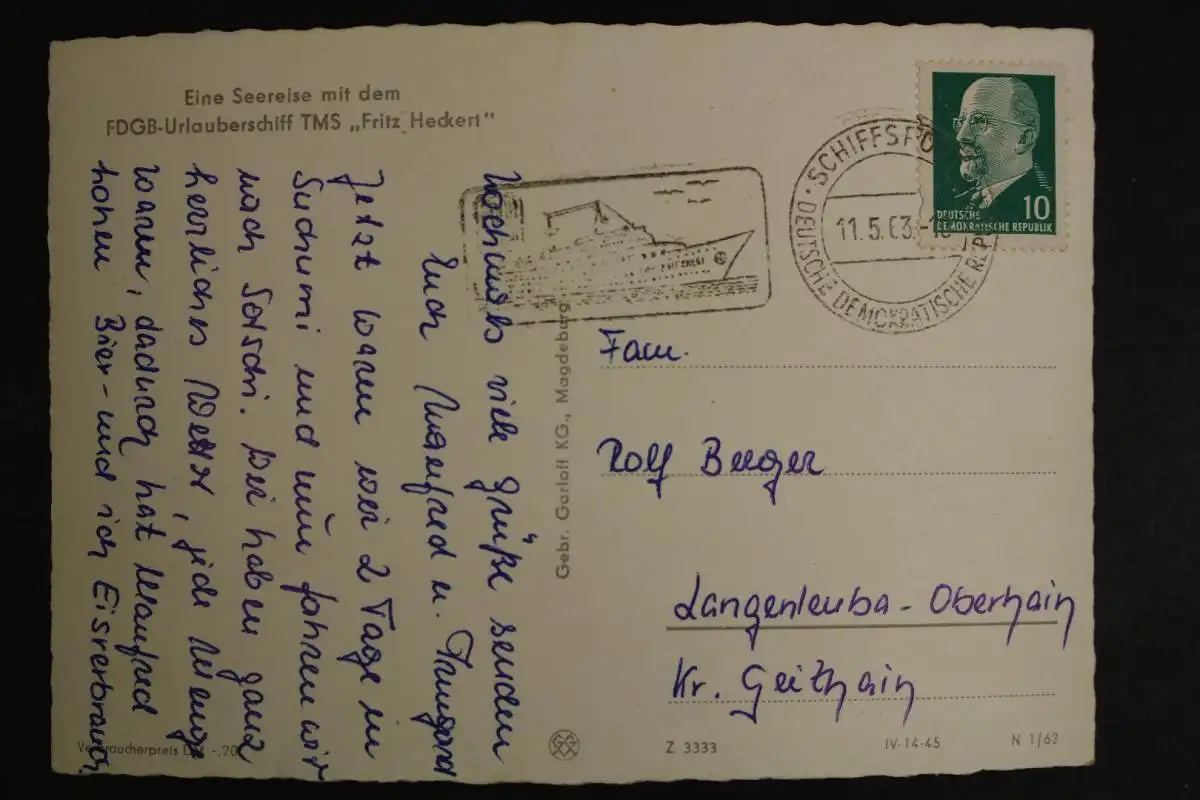 Eine Seereise mit dem
FDGB-Urlauberschiff TMS „Fritz Heckert"
Nochmals viele Grüße senden
Euch Manfred u. Irmgard
Jetzt waren wir 2 Tage in
Suchumi und nun fahren wir
nach Sotschi. Wir haben ganz
herrliches Wetter, jede Menge
warm, dadurch hat Manfred
hohen Bier- und ich Eisverbrauch.
Verbraucherpreis DM -.20
Gebr. Garloff KG., Magdeburg
SCHIFFSPO
11.5.63.
DEUTSCHE DEMOKRATISCHE REP
DEUTSCHE
DEMOKRATISCHE REPUBLIK
10
Fam.
Rolf Berger
Langenleuba-Oberhain
Kr. Geithain
Z 3333
IV-14-45
N 1/62